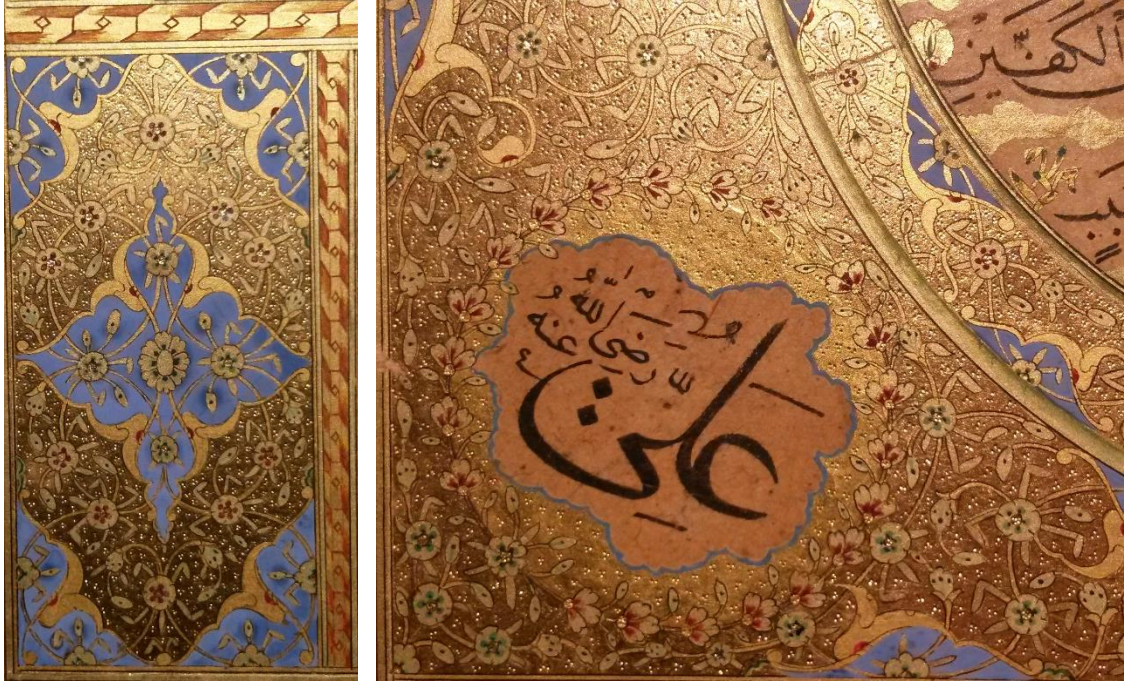 الكفّين
علي رضي اللّه عنه